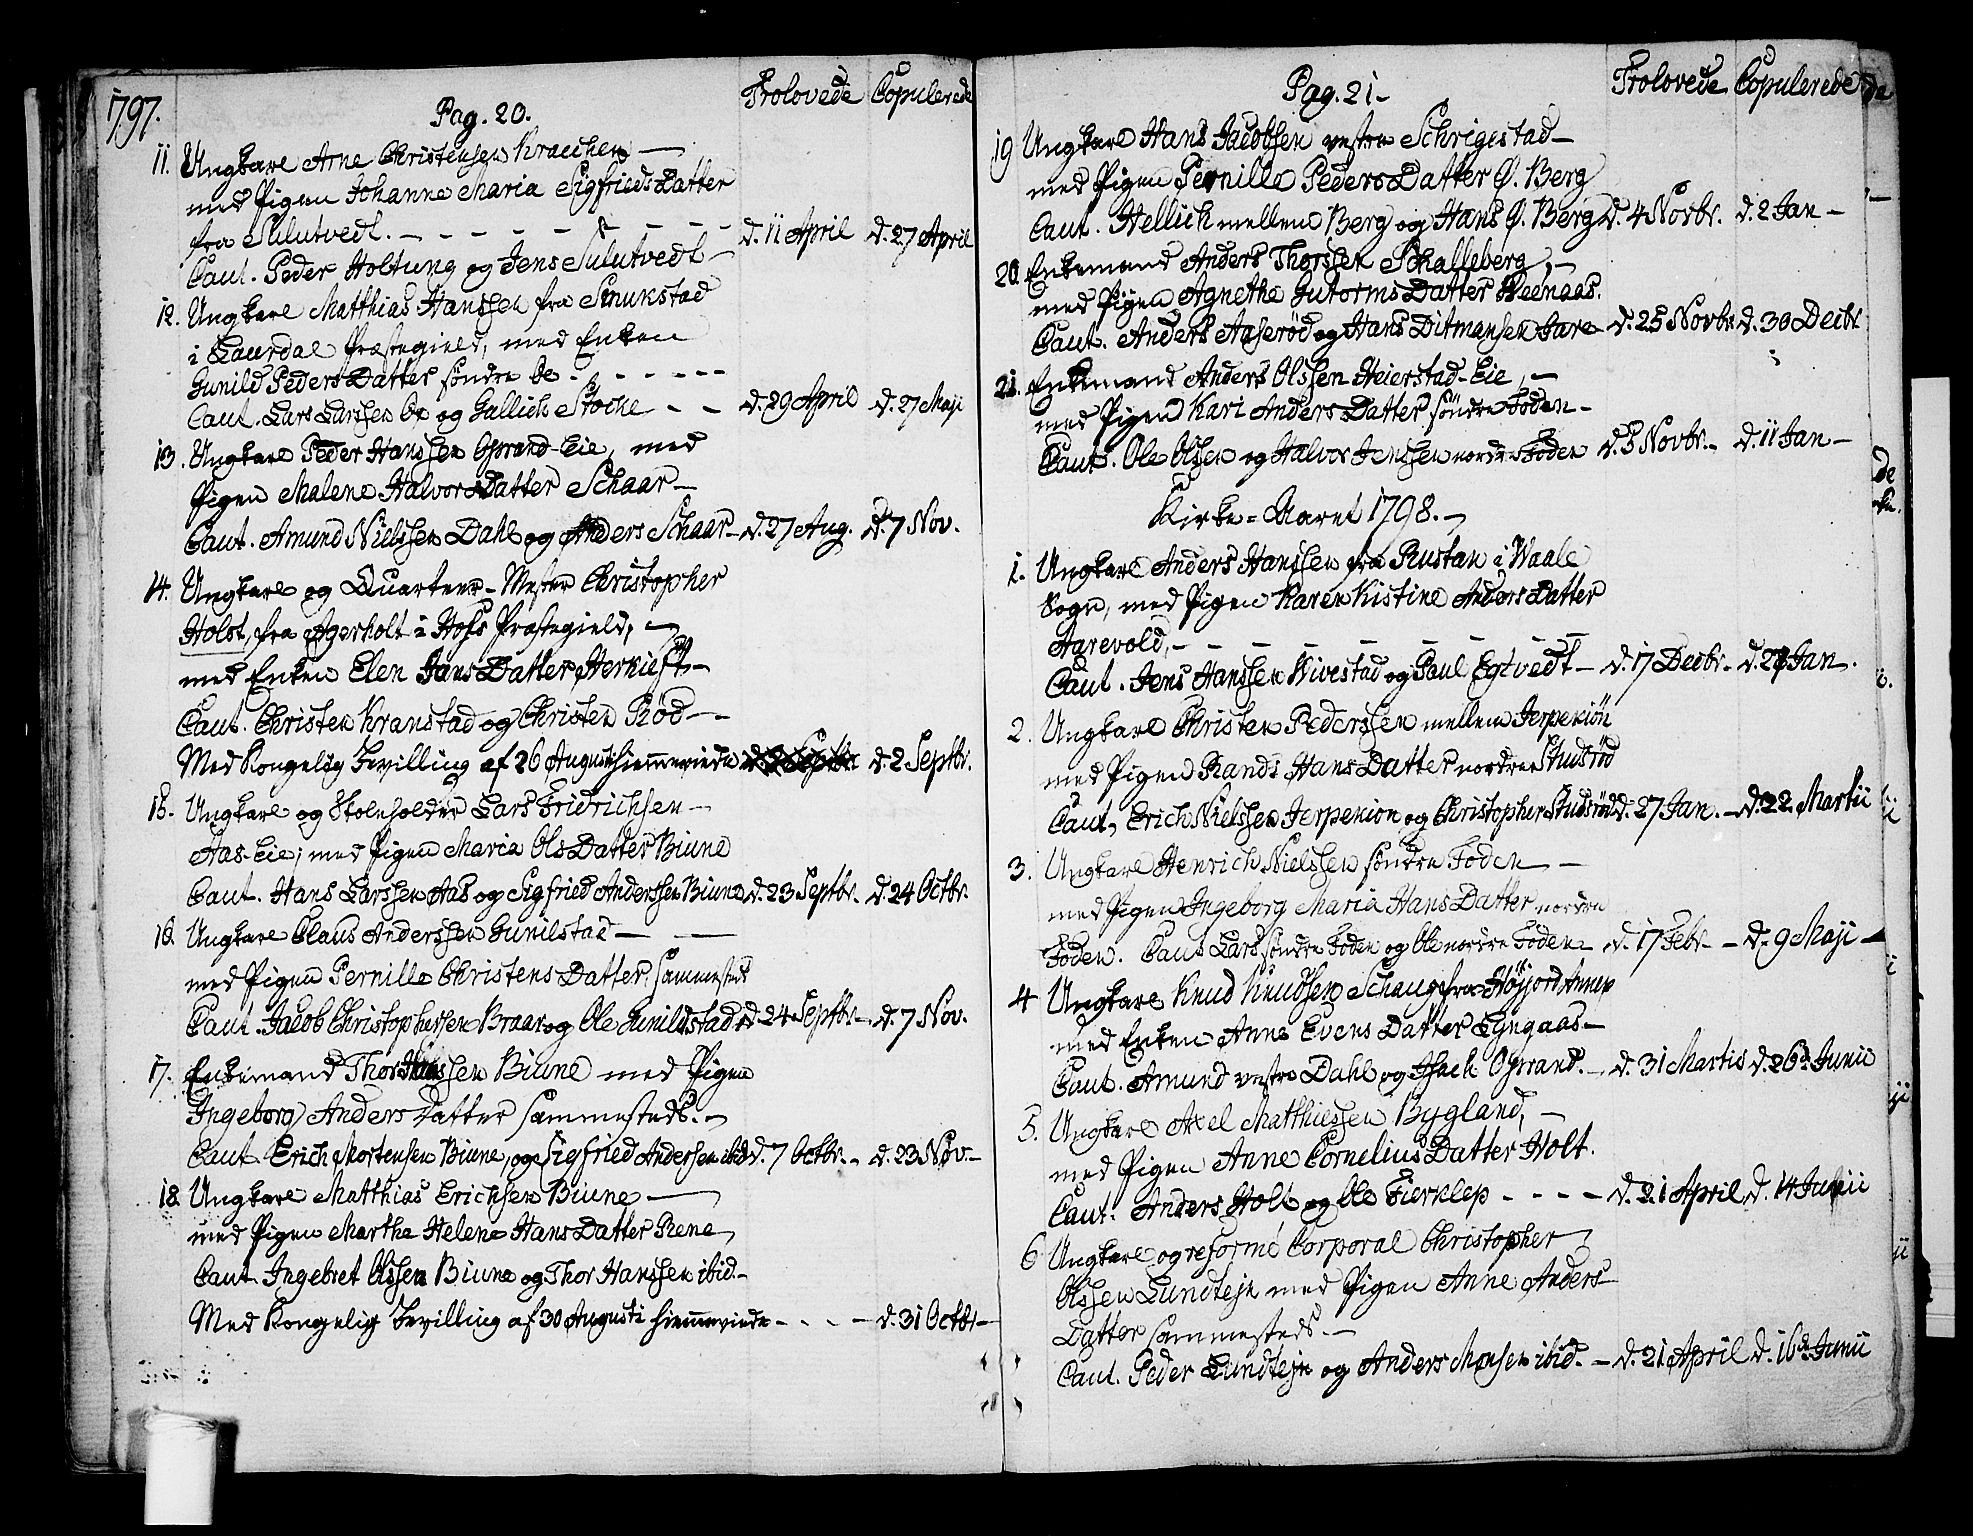 1797.
Pag. 20.
Trolovede Copulerede
11. Ungkarl Arne Christensen Kraechen —
med Pigen Johanne Maria SigfriedsDatter
fra Sulutvedt. — — — — — — — d. 11 April d. 27 April
Caut. Peder Holtung og Jens Sulutvedt —
12. Ungkarl Matthias Hanssen fra Smukstad
i Laurdal Præstegield, med Enken
Gunild PedersDatter søndre Oe - - - - - -
Caut. Lars Larssen Oe og Gullich Stocke - - d. 29 April d. 27 Maji
13. Ungkarl Peder Hanssen Oprand-Eie, med
Pigen Malene HalvorsDatter Schaar —
Caut. Amund Nielssen Dahl og Anders Schaar - d. 27 Aug. d. 7 Nov.
14. Ungkarl og Quarteer-Mester Christopher
Holst, fra Agerholt i Hofs Præstegield, —
med Enken Elen JansDatter
Caut. Christen Kranstad og Christen Rød —
Med Kongelig Bevilling af 26 August hiemmeviede d. 2 Septbr.
15. Ungkarl og Stolpholder Lars Fridrichsen —
Aas-Eie; med Pigen Maria OlsDatter Biune
Caut. Hans Larssen Aas og Sigfried Anderssen Biune d. 23 Septbr. d. 24 Octbr.
16. Ungkarl Claus Anderssen Gunilstad — —
med Pigen Pernille ChristensDatter, sammesteds
Caut. Jacob Christophersen Braar og Ole Gunildstad d. 24 Septbr. d. 7 Nov.
17. Enkemand Thor Hanssen Biune med Pigen
Ingeborg AndersDatter sammesteds. —
Caut. Erich Mortensen Biune, og Sigfried Andersen ibid d. 7 Octbr. - d. 23 Nov. -
18. Ungkarl Matthias Erichsen Biune —
med Pigen Martha Helene HansDatter Rene
Caut. Ingebret Olssen Biune og Thor Hanssen ibid -
Med Kongelig Bevilling af 30 Augusti hiemmeviede - - - - d. 31 Octbr. -
Pag. 21 -
Trolovede Copulerede
19 Ungkarl Hans Jacobsen vestre Schrigestad —
med Pigen Pernille PedersDatter Ø. Berg
Caut. Hellich mellem Berg og Hans Ø. Berg d. 4 Novbr. d. 2 Jan -
20. Enkemand Anders Thorssen Schalleberg, —
med Pigen Agnethe GutormsDatter Steenaas.
Caut. Anders Aaserød og Hans Ditmansen Gare - d. 25 Novbr d. 30 Decbr
21. Enkemand Anders Olssen Heierstad-Eie, —
med Pigen Kari AndersDatter søndre Foden -
Caut. Ole Olssen og Halvor Jenssen nordre Foden d. 5 Novbr. - d. 11 Jan -
Kirke-Aaret 1798. —
1. Ungkarl Anders Hanssen fra Rustan i Waale
Sogn, med Pigen Karen Kistine AndersDatter
Aarevold, - - - - - - - -
Caut. Jens Hanssen Wivestad og Paul Egtvedt - d. 17 Decbr - d. 27 Jan.
2. Ungkarl Christen Pederssen mellem Jerpekiön
med Pigen Randi HansDatter nordre Studsrød
Caut, Erich Nielssen Jerpekion og Christopher Studsrød d. 27 Jan. - d. 22 Martii
3. Ungkarl Henrich Nielssen søndre Foden —
med Pigen Ingeborg Maria HansDatter nordre
Foden. Caut Lars søndre Foden og Ole nordre Foden - d. 17 Febr - - d. 9 Maji -
4 Ungkarl Knud Knudsen Schaug fra Høyjord Annex
med Enken Anne EvensDatter Lyngaas —
Caut. Amund vestre Dahl og Isach Oprand. - d. 31 Martis d. 26de Junii
5. Ungkarl Axel Matthiessen Bygland, —
med Pigen Anne CorneliusDatter Holt.
Caut. Anders Holt og Ole Fierklep - - - - d. 21 April d. 14 Junii
6 Ungkarl og reformé Corporal Christopher
Olssen Lundtejn med Pigen Anne Anders-
Datter sammesteds. —
Caut. Peder Lundtejn og Anders Monsen ibid. - d. 21 April d. 16de Junii